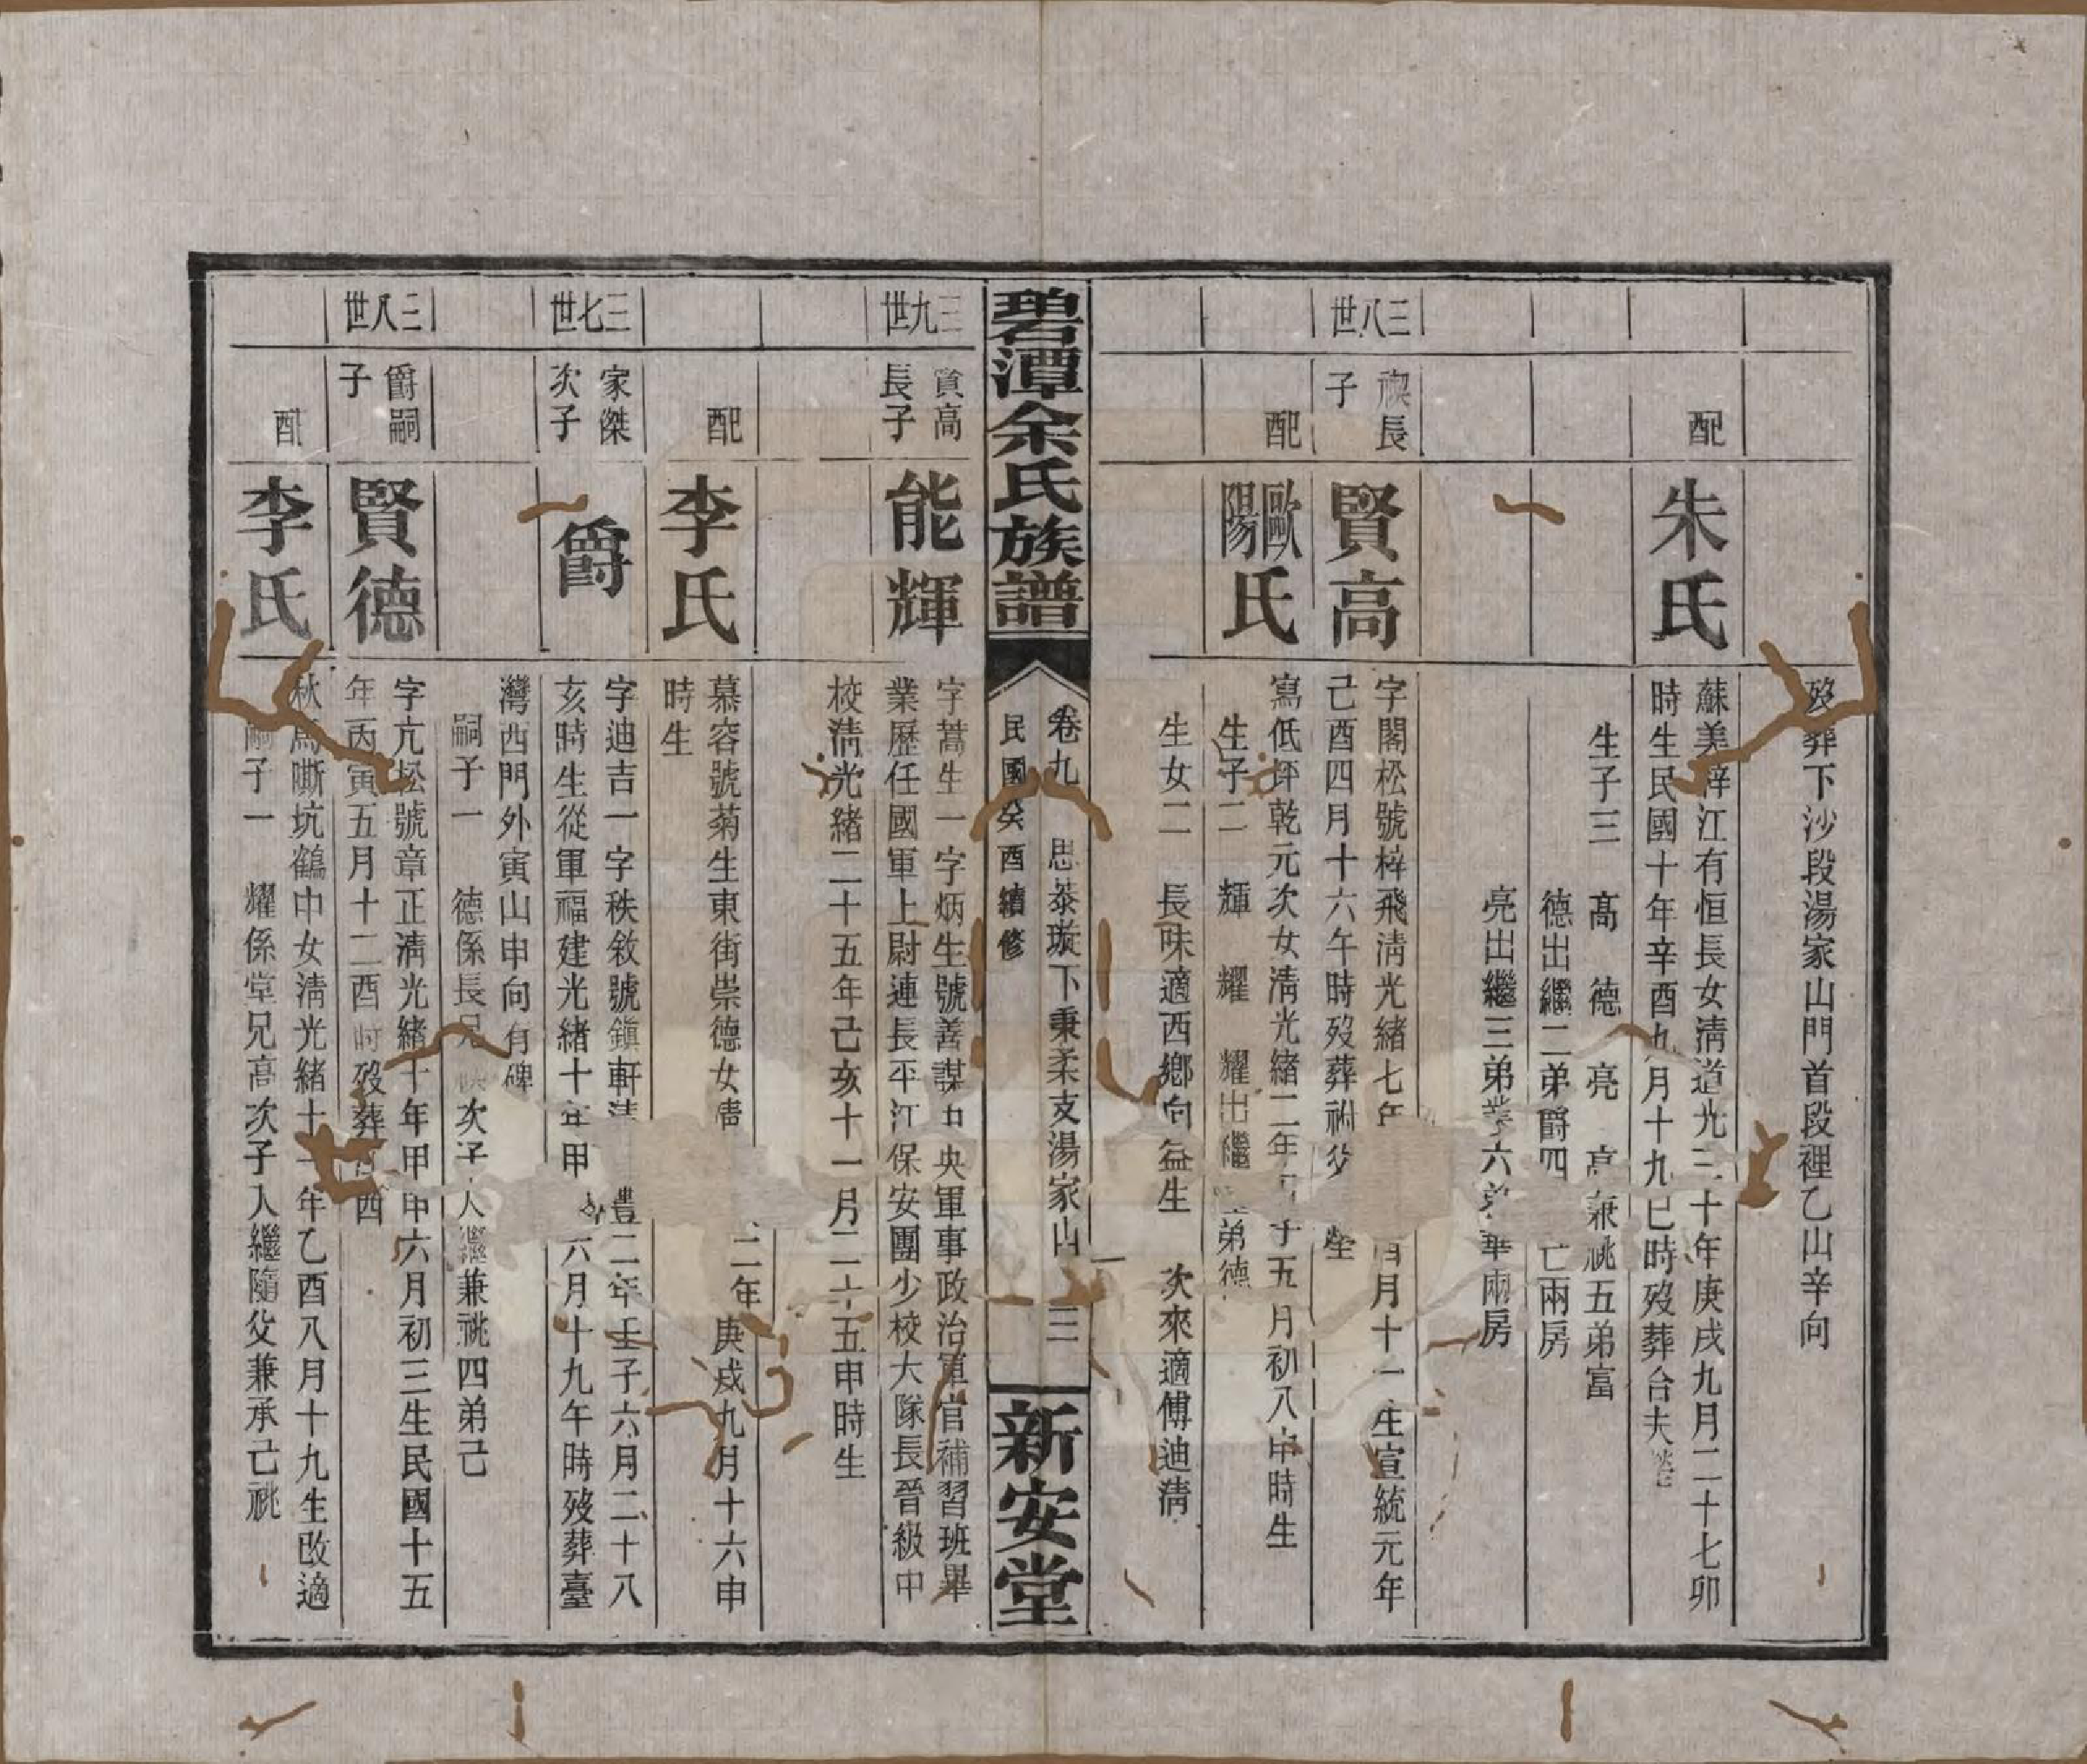 歿葬下沙段湯家山門首段裡乙山辛向
配
朱氏
蘇美梓江有恒長女淸道光三十年庚戌九月二十七卯
時生民國十年辛酉九月十九巳時歿葬合夫塋
生子三 高 德 亮 高兼祧五弟富
德出繼二弟爵四 亡兩房
亮出繼三弟 六弟華兩房
三八世
禊長
子
賢高
字閣松號梓飛淸光緒七年 月十一 生宣統元年
己酉四月十六午時歿葬祔父 塋
配
歐陽氏
寫低坪乾元次女淸光緒二年 子五月初八申時生
生子二 輝 耀 耀出繼 弟德
生女二 長味適西鄉向益生 次來適傅迪淸
碧潭余氏族譜
卷九 思恭璇下秉柔支湯家山 三
民國癸酉續修
新安堂
三九世
賢高
長子
能輝
字蒿生一字炳生號善謀中央軍事政治軍官補習班畢
業歷任國軍上尉連長平江保安團少校大隊長晉級中
校淸光緒二十五年己亥十一月二十五申時生
配
李氏
慕容號菊生東街崇德女淸 二年庚戌九月十六申
時生
三七世
家傑
次子
爵
字迪吉一字秩敘號鎮軒淸 豐二年壬子六月二十八
亥時生從軍福建光緒十年甲 六月十九午時歿葬臺
灣西門外寅山申向有碑
嗣子一 德係長兄禊次子入繼兼祧四弟己
三八世
爵嗣
子
賢德
字亢松號章正淸光緒十年甲申六月初三生民國十五
年丙寅五月十二酉時歿葬 西
配
李氏
秋馬嘶坑鶴中女淸光緒十一年乙酉八月十九生改適
嗣子一 耀係堂兄高次子入繼隨父兼承己祧